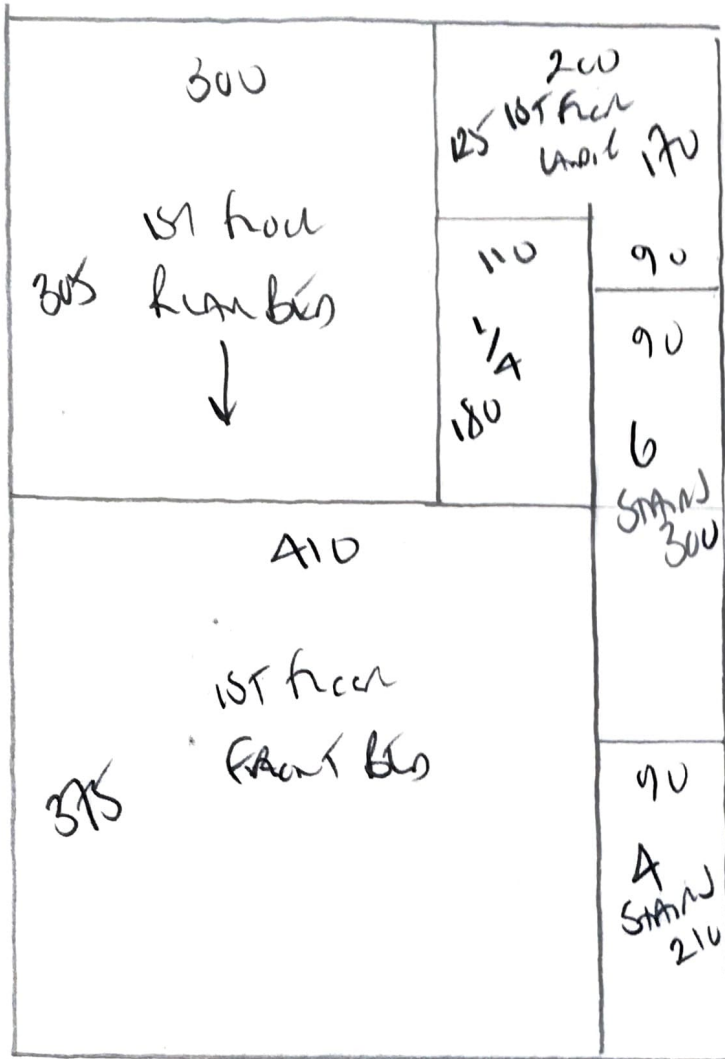 300
1ST FLOOR
REAR BED
305
200
1ST FLOOR
LANDING
125
170
110
1/4
180
90
90
6
STAIRS
300
410
1ST FLOOR
FRONT BED
375
90
4
STAIRS
210